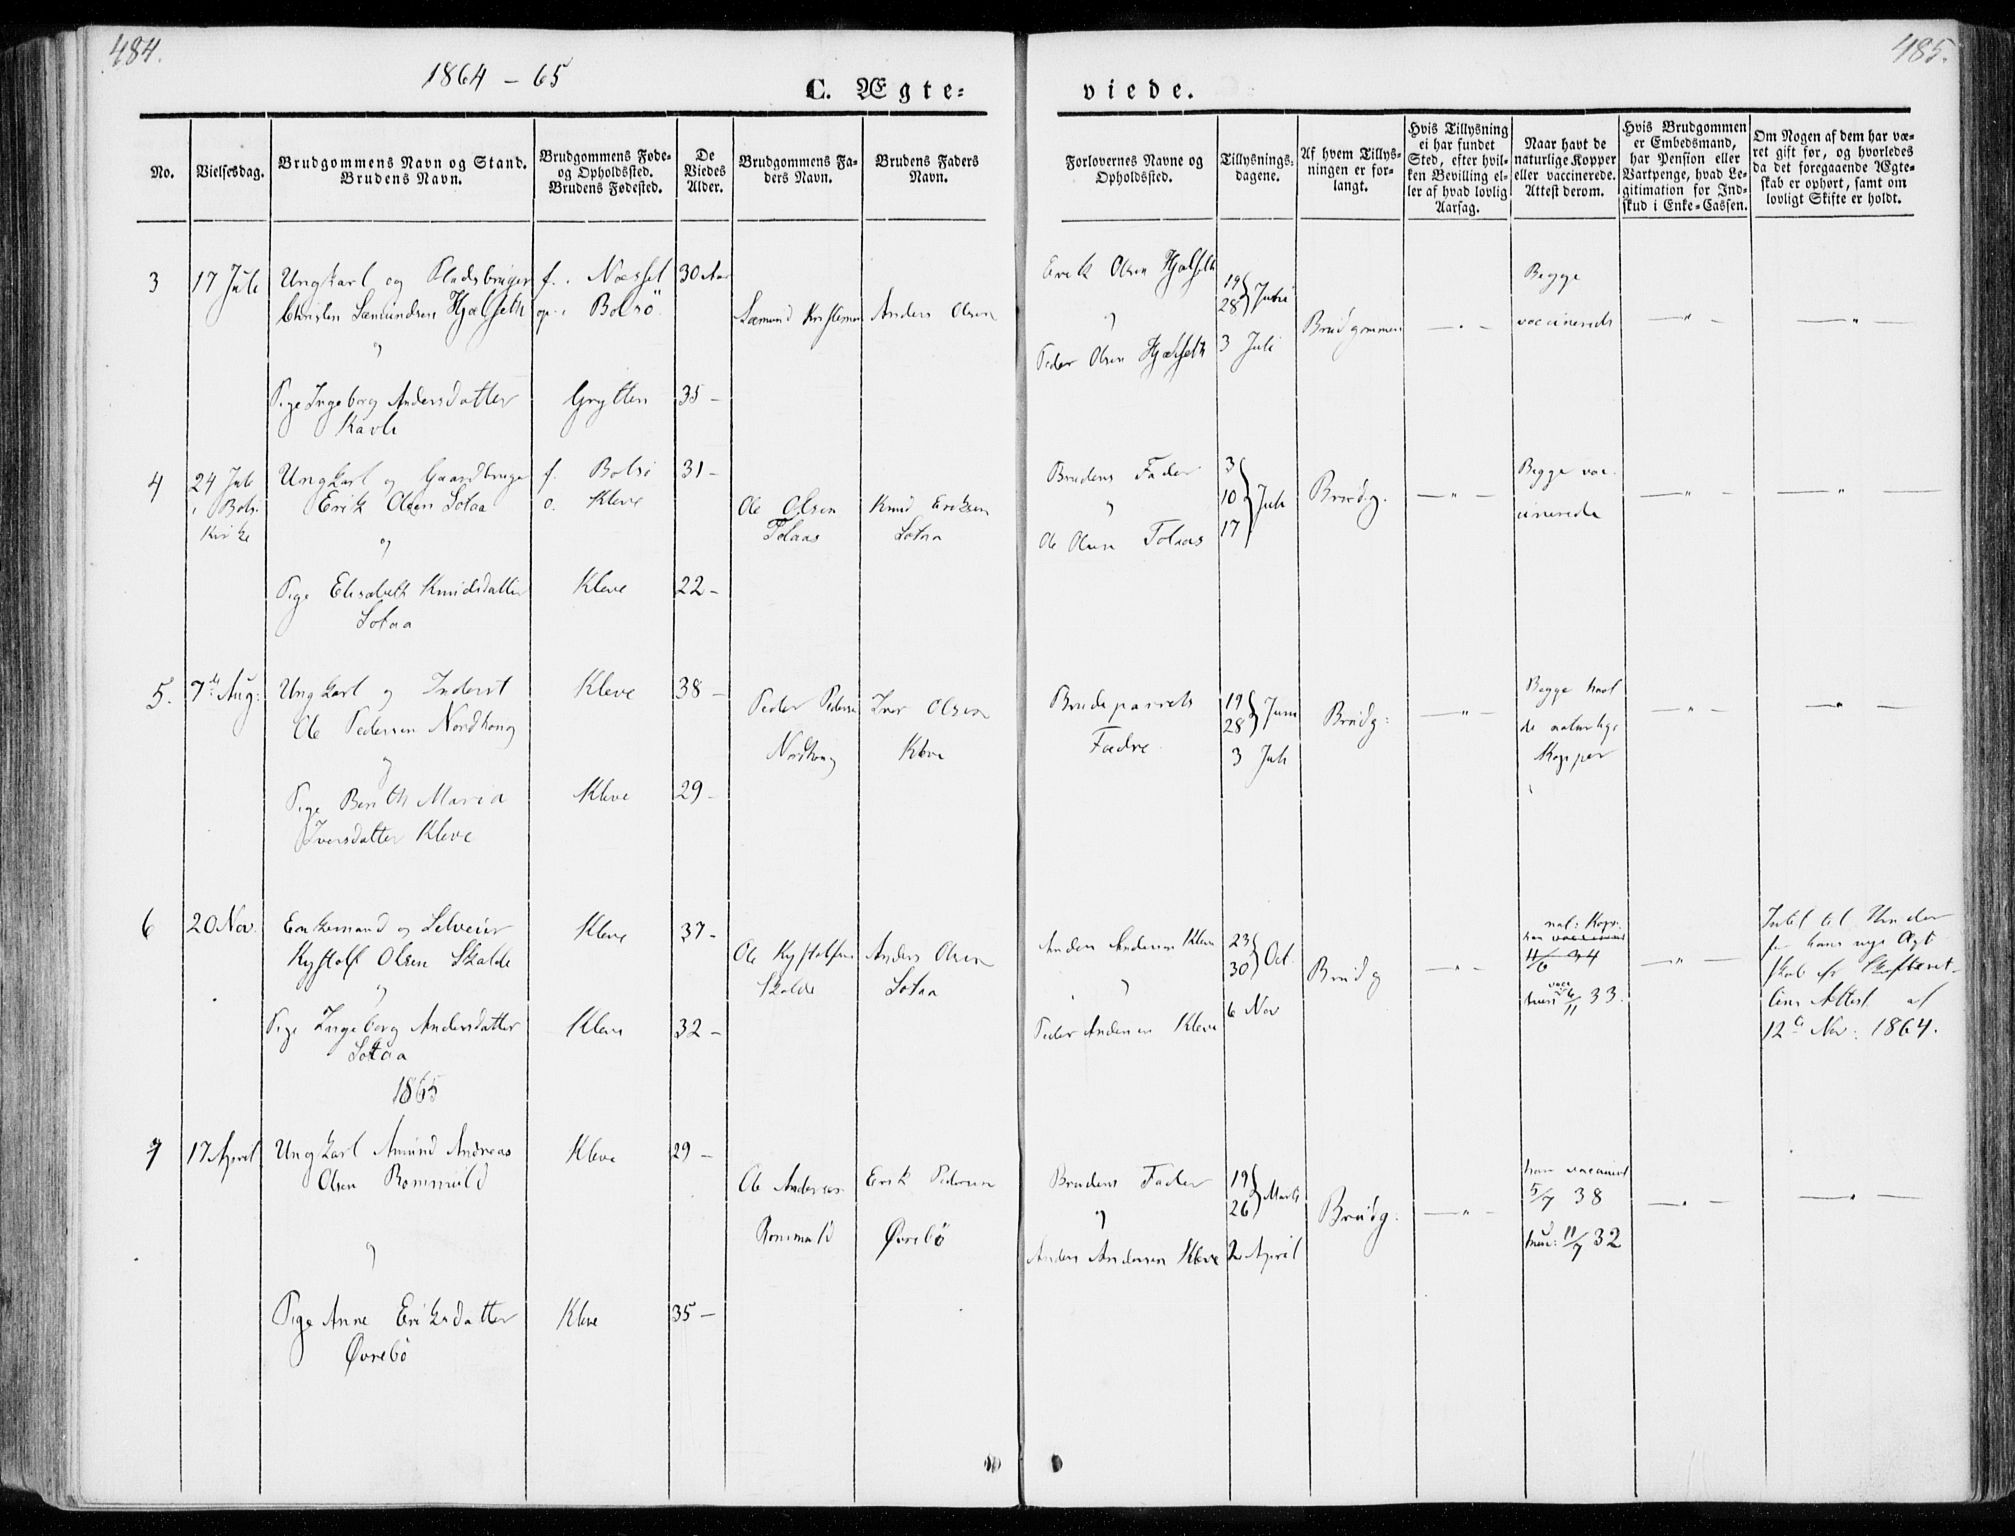 484.
485.
1864 – 65
C. Ægte-
viede.
No.
Vielsesdag.
Brudgommens Navn og Stand.
Brudens Navn.
Brudgommens Føde-
og Opholdssted.
Brudens Fødested.
De
Viedes
Alder.
Brudgommens Fa-
ders Navn.
Brudens Faders
Navn.
Forlovernes Navne og
Opholdssted.
Tillysnings-
dagene.
Af hvem Tillys-
ningen er for-
langt.
Hvis Tillysning
ei har fundet
Sted, efter hvil-
ken Bevilling el-
ler af hvad lovlig
Aarsag.
Naar havt de
naturlige Kopper
eller vaccinerede.
Attest derom.
Hvis Brudgommen
er Embedsmand,
har Pension eller
Vartpenge, hvad Le-
gitimation for Ind-
skud i Enke-Cassen.
Om Nogen af dem har væ-
ret gift før, og hvorledes
da det foregaaende Ægte-
skab er ophørt, samt om
lovligt Skifte er holdt.
3
17 Juli
Ungkarl og Pladsbruger
Christen Sæmundsen Hjelseth
og
Pige Ingeborg Andersdatter
Kavli
f. i Nesset
op. i Bolsö
Grytten
30 Aar
35 –
Anders Olsen
Erik Olsen Hjelseth
og
Peder Olsen Hjelseth
19
28 Juni
3 Juli
Brudgommen
Begge
vaccinerede
4
24 Juli
i Bols.
Kirke
Ungkarl og Gaardbruger
Erik Olsen Sotaa
og
Pige Elisabeth Knudsdatter
Sotaa
f. Bolsö
o. Kleve
Kleve
31 –
22 –
Ole Olsen
Tolaas
Knud Eriksen
Sotaa
Brudens Fader
og
Ole Olsen Tolaas
3
10 Juli
17
Brudg.
Begge vac-
cinerede
5.
7de Aug:
Ungkarl og Inderst
Ole Pedersen Nordhoug
og
Pige Berith Maria
Iversdatter Kleve
Kleve
Kleve
38 –
29 –
Peder Pedersen
Nordhoug
Iver Olsen
Kleve
Brudeparrets
Fædre
19
28 Juni
3 Juli
Brudg:
Begge havt
de naturlige
Kopper
6
20 Nov.
Enkemand og Selveier
Olsen Skalde
og
Pige Ingeborg Andersdatter
Sotaa
Kleve
Kleve
37 –
32 –
Ole
Skalde
Anders Olsen
Sotaa
Anders Andersen Kleve
og
Peder Andersen Kleve
23
30 Oct.
6 Nov
Brudg
nat: Kopp.
han vaccineret
11/6 34
vacc
hun 6/11 33.
Intet til Hinder
for hans nye Ægt-
skab efr Skifteret-
tens Attest af
12te Nov: 1864.
1865
7
17 April
Ungkarl Amund Andreas
Olsen Rommuld
og
Pige Anne Eriksdatter
Øvrebö
Kleve
Kleve
29 –
35 –
Ole Andersen
Rommuld
Erik Pedersen
Øvrebö
Brudens Fader
og
Anders Andersen Kleve
19
26 Marts
2 April
Brudg:
han vaccineret
5/7 38
hun: 11/7 32